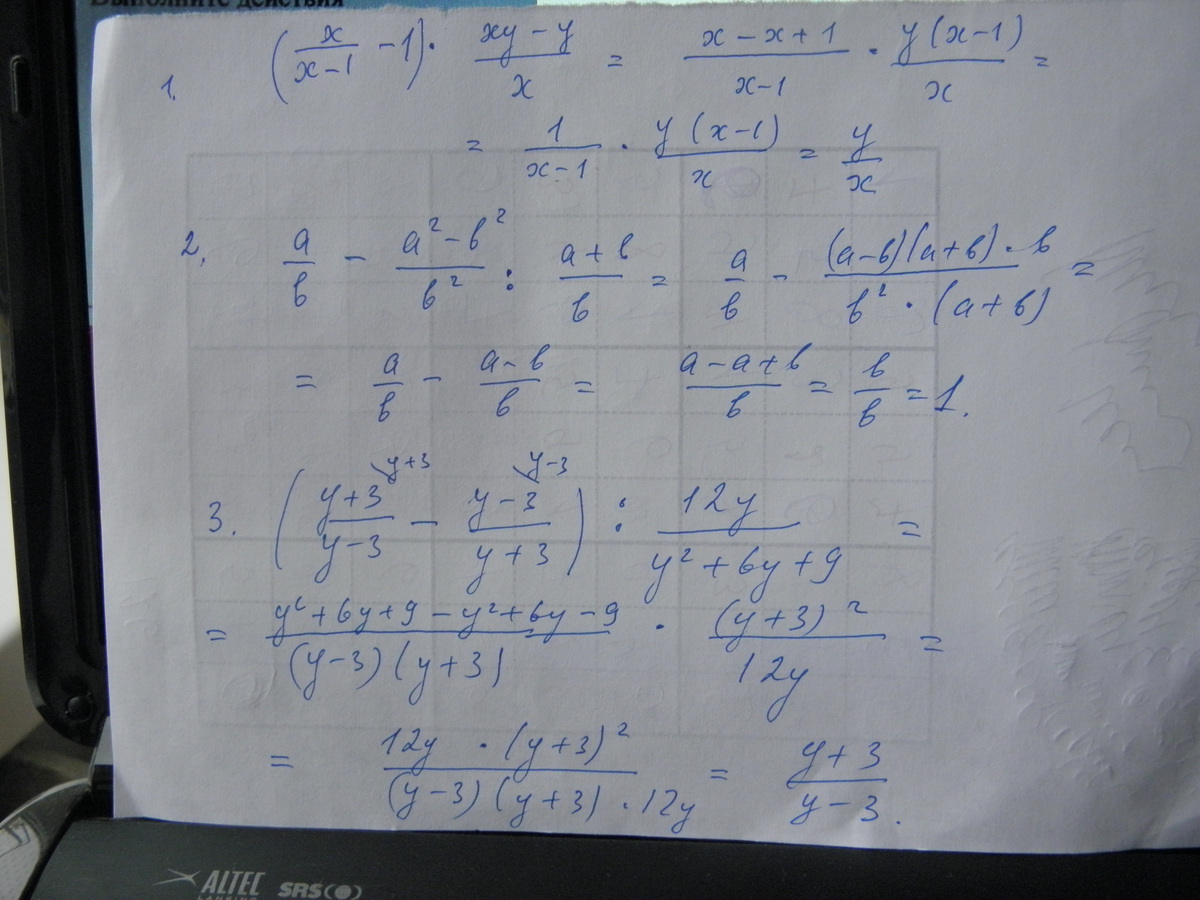 Выполните действия
1. (x/(x-1) - 1) · (xy - y)/x = (x - x + 1)/(x-1) · y(x-1)/x =
= 1/(x-1) · y(x-1)/x = y/x
2. a/b - (a² - b²)/b² : (a + b)/b = a/b - (a-b)(a+b)·b/(b² · (a+b)) =
= a/b - (a-b)/b = (a - a + b)/b = b/b = 1.
3. ((y+3)/(y-3) \y+3 - (y-3)/(y+3) \y-3) : 12y/(y² + 6y + 9) =
= (y² + 6y + 9 - y² + 6y - 9)/((y-3)(y+3)) · (y+3)²/12y =
= 12y · (y+3)²/((y-3)(y+3) · 12y) = (y+3)/(y-3).
ALTEC SRS
LANSING